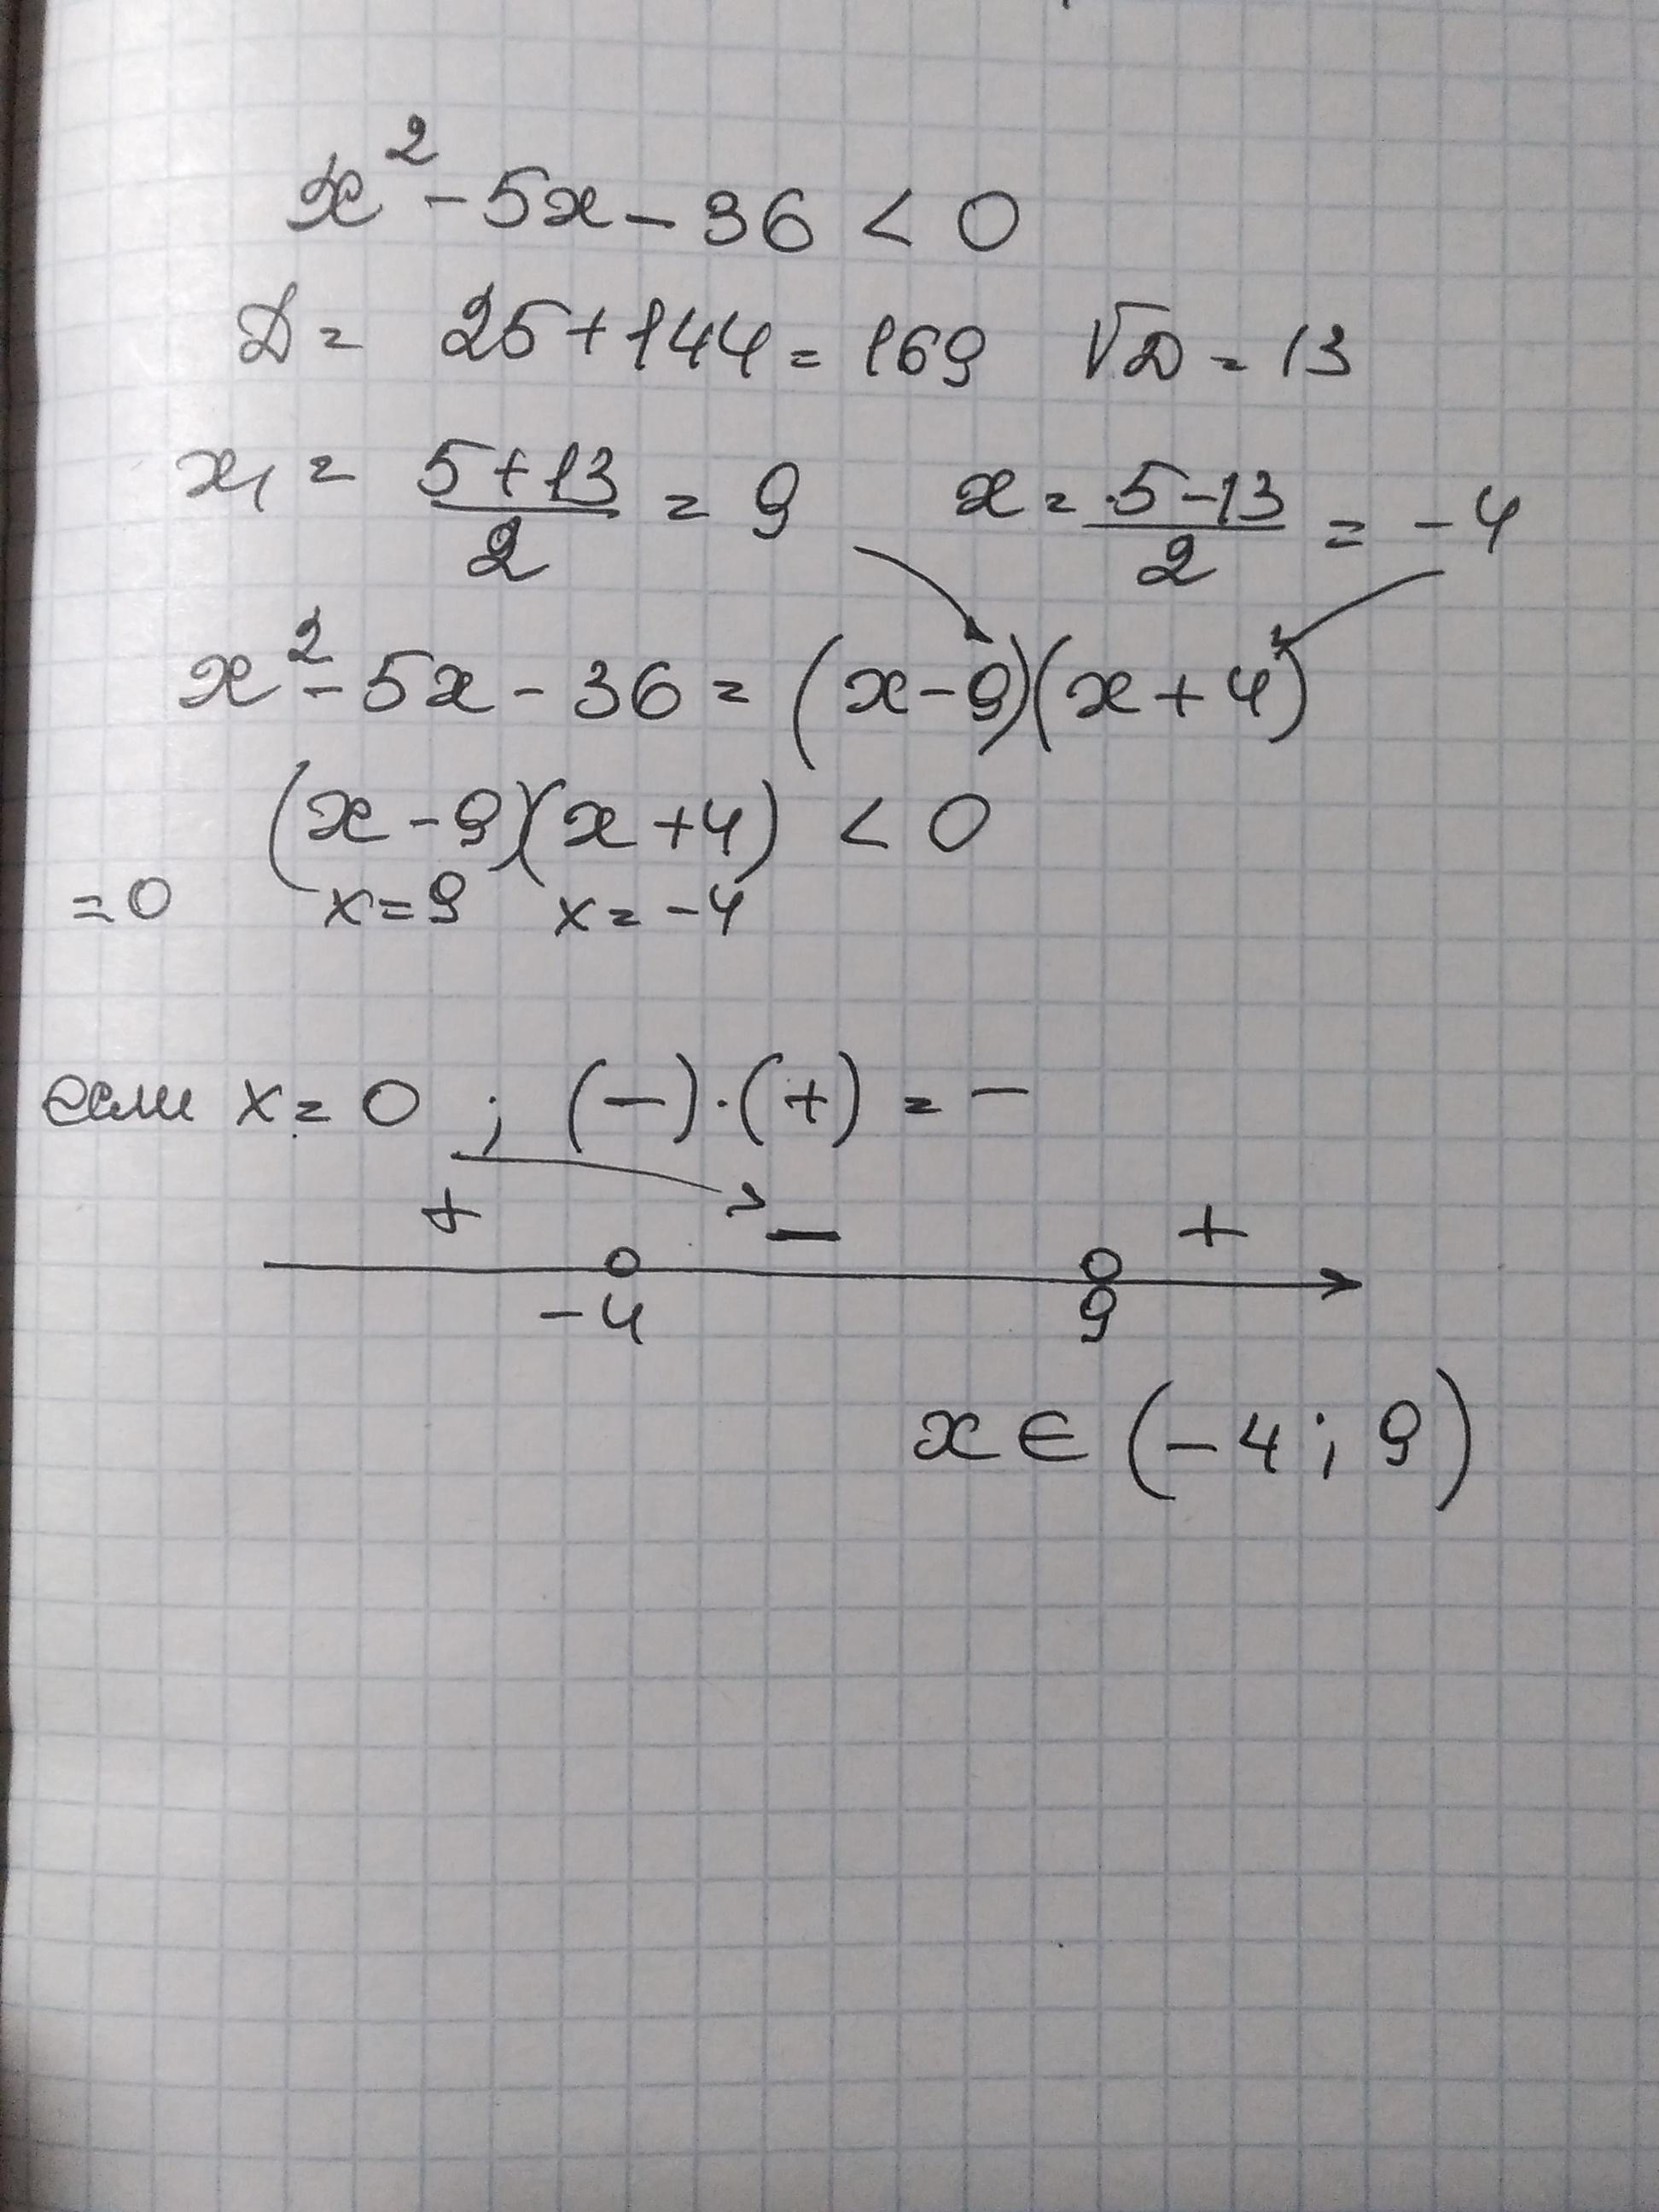 x² - 5x - 36 < 0
D = 25 + 144 = 169 √D = 13
x₁ = (5 + 13)/2 = 9 x = (5 - 13)/2 = -4
x² - 5x - 36 = (x - 9)(x + 4)
(x - 9)(x + 4) < 0
= 0 x = 9 x = -4
если x = 0 ; (-) · (+) = -
+ - +
-4 9
x ∈ (-4 ; 9)